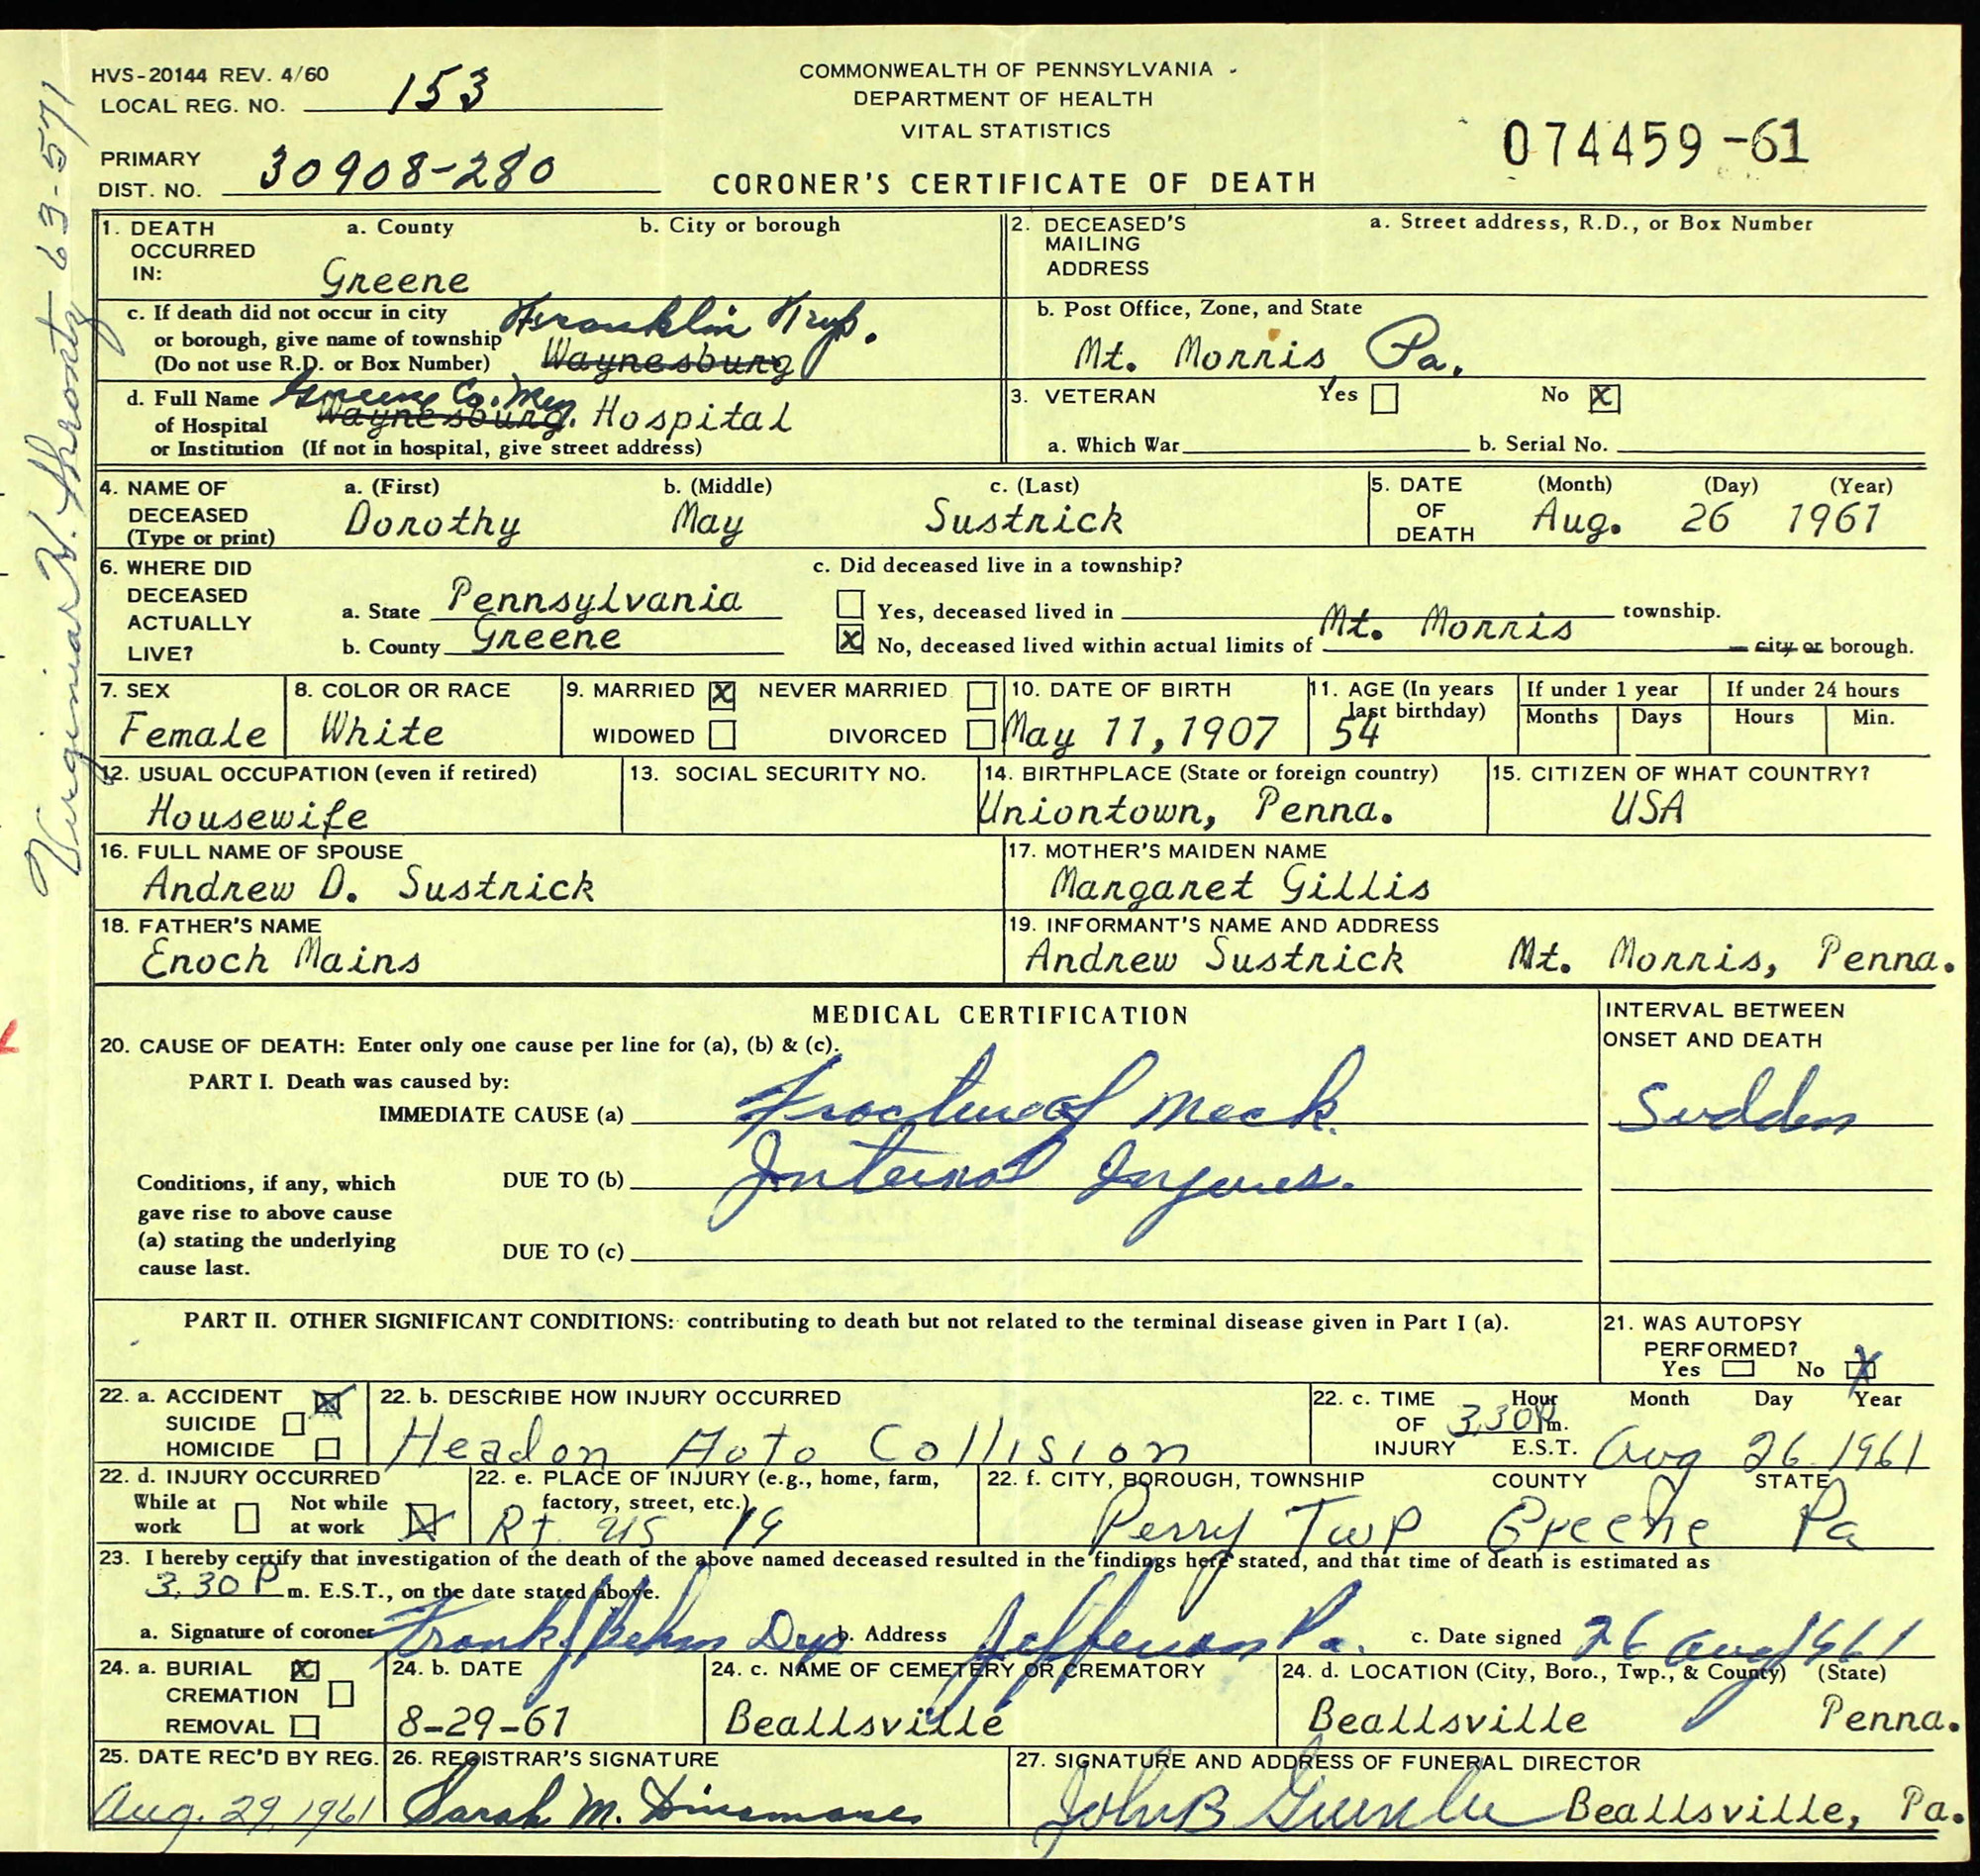 HVS-20144 REV. 4/60
LOCAL REG. NO. 153
COMMONWEALTH OF PENNSYLVANIA
DEPARTMENT OF HEALTH
VITAL STATISTICS
074459-61
PRIMARY
DIST. NO. 30908-280
CORONER'S CERTIFICATE OF DEATH
1. DEATH OCCURRED IN: a. County b. City or borough
Greene
2. DECEASED'S MAILING ADDRESS a. Street address, R.D., or Box Number
c. If death did not occur in city
or borough, give name of township Franklin Twp.
(Do not use R.D. or Box Number) Waynesburg
b. Post Office, Zone, and State
Mt. Morris, Pa.
d. Full Name Greene Co. Mem
of Hospital Waynesburg. Hospital
or Institution (If not in hospital, give street address)
3. VETERAN Yes No X
a. Which War b. Serial No.
4. NAME OF DECEASED (Type or print) a. (First) b. (Middle) c. (Last)
Dorothy May Sustrick
5. DATE OF DEATH (Month) (Day) (Year)
Aug. 26 1961
6. WHERE DID DECEASED ACTUALLY LIVE?
a. State Pennsylvania
b. County Greene
c. Did deceased live in a township?
Yes, deceased lived in township.
X No, deceased lived within actual limits of Mt. Morris city or borough.
7. SEX
Female
8. COLOR OR RACE
White
9. MARRIED X NEVER MARRIED
WIDOWED DIVORCED
10. DATE OF BIRTH
May 11, 1907
11. AGE (In years last birthday)
54
If under 1 year
Months Days
If under 24 hours
Hours Min.
12. USUAL OCCUPATION (even if retired)
Housewife
13. SOCIAL SECURITY NO.
14. BIRTHPLACE (State or foreign country)
Uniontown, Penna.
15. CITIZEN OF WHAT COUNTRY?
USA
16. FULL NAME OF SPOUSE
Andrew D. Sustrick
17. MOTHER'S MAIDEN NAME
Margaret Gillis
18. FATHER'S NAME
Enoch Mains
19. INFORMANT'S NAME AND ADDRESS
Andrew Sustrick Mt. Morris, Penna.
MEDICAL CERTIFICATION
INTERVAL BETWEEN
ONSET AND DEATH
20. CAUSE OF DEATH: Enter only one cause per line for (a), (b) & (c).
PART I. Death was caused by:
IMMEDIATE CAUSE (a) Fracture of Neck. Sudden
Conditions, if any, which
gave rise to above cause
(a) stating the underlying
cause last.
DUE TO (b) Internal Injuries.
DUE TO (c)
PART II. OTHER SIGNIFICANT CONDITIONS: contributing to death but not related to the terminal disease given in Part I (a).
21. WAS AUTOPSY
PERFORMED?
Yes No X
22. a. ACCIDENT X
SUICIDE
HOMICIDE
22. b. DESCRIBE HOW INJURY OCCURRED
Headon Auto Collision
22. c. TIME OF INJURY Hour Month Day Year
3,30 P m. E.S.T. Aug 26 1961
22. d. INJURY OCCURRED
While at work Not while at work X
22. e. PLACE OF INJURY (e.g., home, farm,
factory, street, etc.)
Rt US 19
22. f. CITY, BOROUGH, TOWNSHIP COUNTY STATE
Perry Twp Greene Pa
23. I hereby certify that investigation of the death of the above named deceased resulted in the findings here stated, and that time of death is estimated as
3,30 P m. E.S.T., on the date stated above.
a. Signature of coroner Frank J Behm Dep b. Address Jefferson Pa. c. Date signed 26 Aug 1961
24. a. BURIAL X
CREMATION
REMOVAL
24. b. DATE
8-29-61
24. c. NAME OF CEMETERY OR CREMATORY
Beallsville
24. d. LOCATION (City, Boro., Twp., & County) (State)
Beallsville Penna.
25. DATE REC'D BY REG.
Aug. 29, 1961
26. REGISTRAR'S SIGNATURE
Sarah M.
27. SIGNATURE AND ADDRESS OF FUNERAL DIRECTOR
John B Beallsville, Pa.
63-571